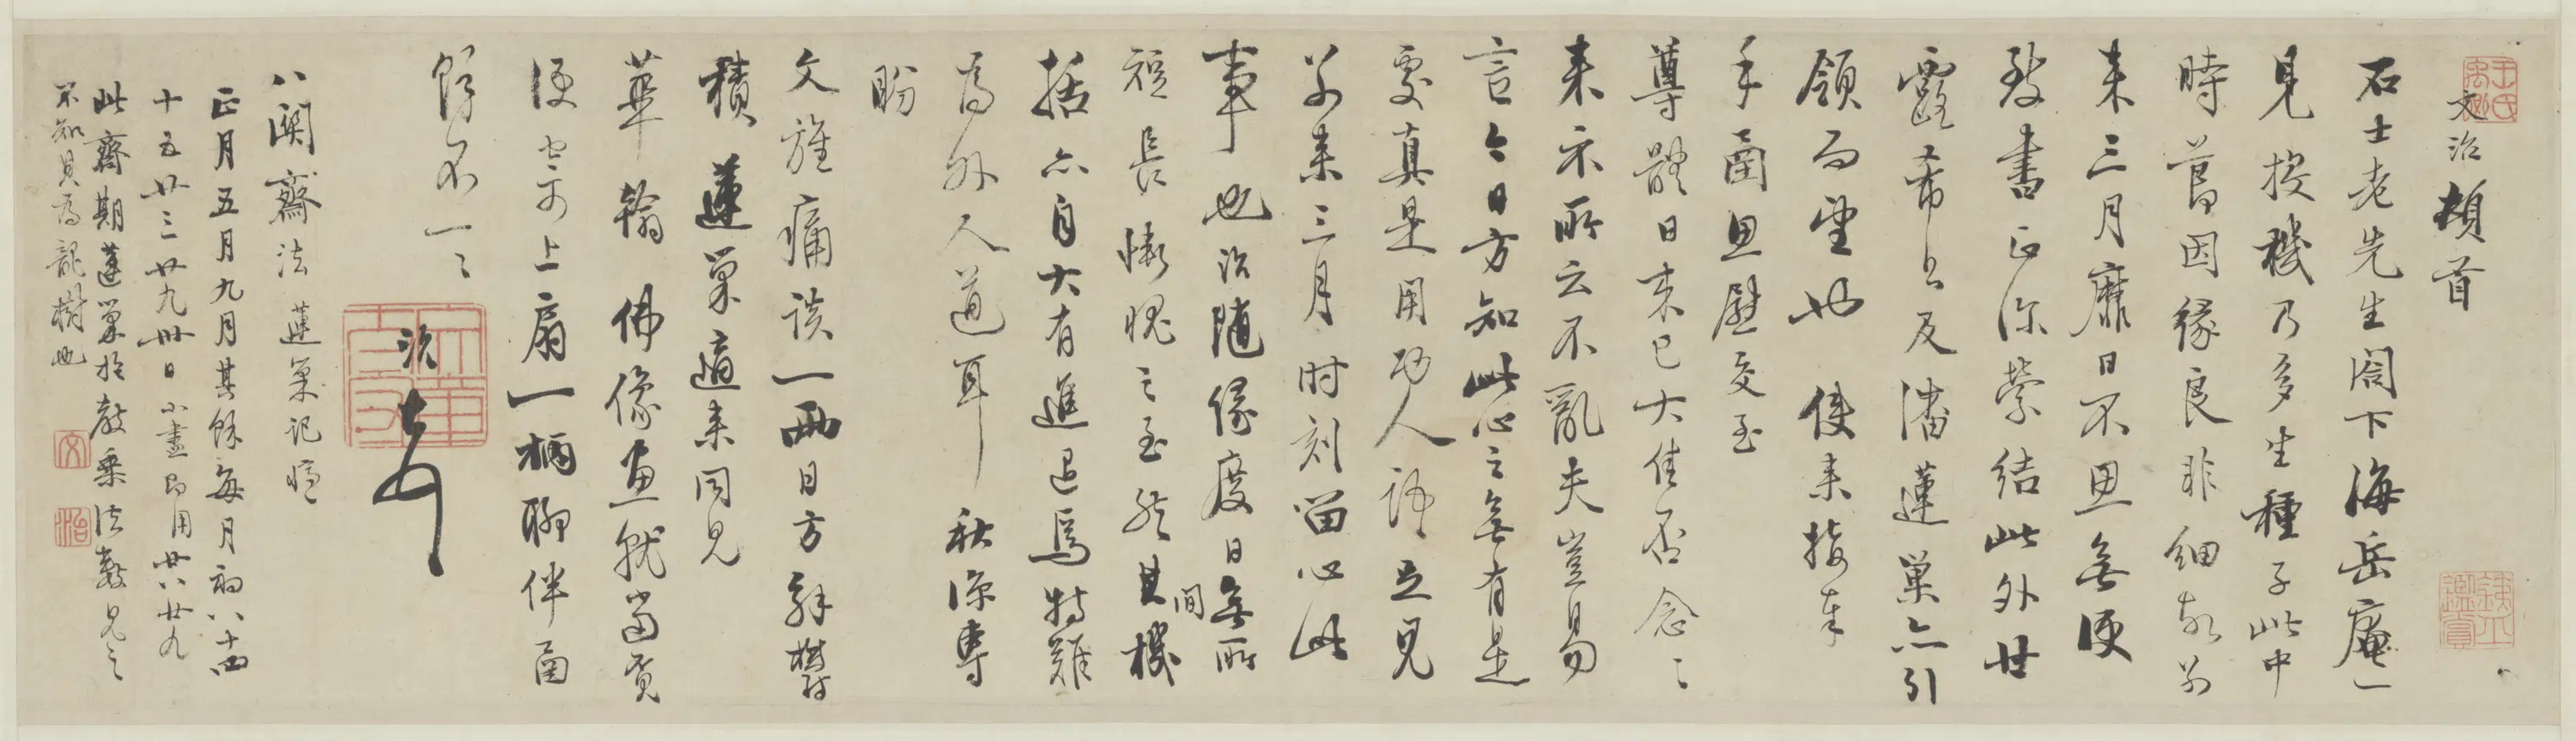 文治頓首
石士老先生閣下海岳庵一
見投機乃多生種子此中
時節因緣良非細故別
來三月靡日不思無便
致書正深縈結此外廿
露希有及潘蓮巢亦引
領而望也使來接奉
手函且慰交至
尊體日來已大佳否念念
來示所云不亂夫豈易
言今日方知此心之無有是
處真是用功人語且見
別來三月時刻留心此
事也治隨緣度日無所
短長慚愧之至然其間機
括亦自大有進退焉特難
為外人道耳 秋深專
盼
文旌痛談一兩日方解鬱
積 蓮巢適來同見
華翰佛像畫就當覓
便寄上扇一柄聊伴函
餘不一一
治
八關齋法 蓮巢記憶
正月五月九月其餘每月初八十四
十五廿三廿九卅日小盡即用廿八廿九
此齋期蓮巢於教乘法數見之
不知貝為龍樹也
文
治